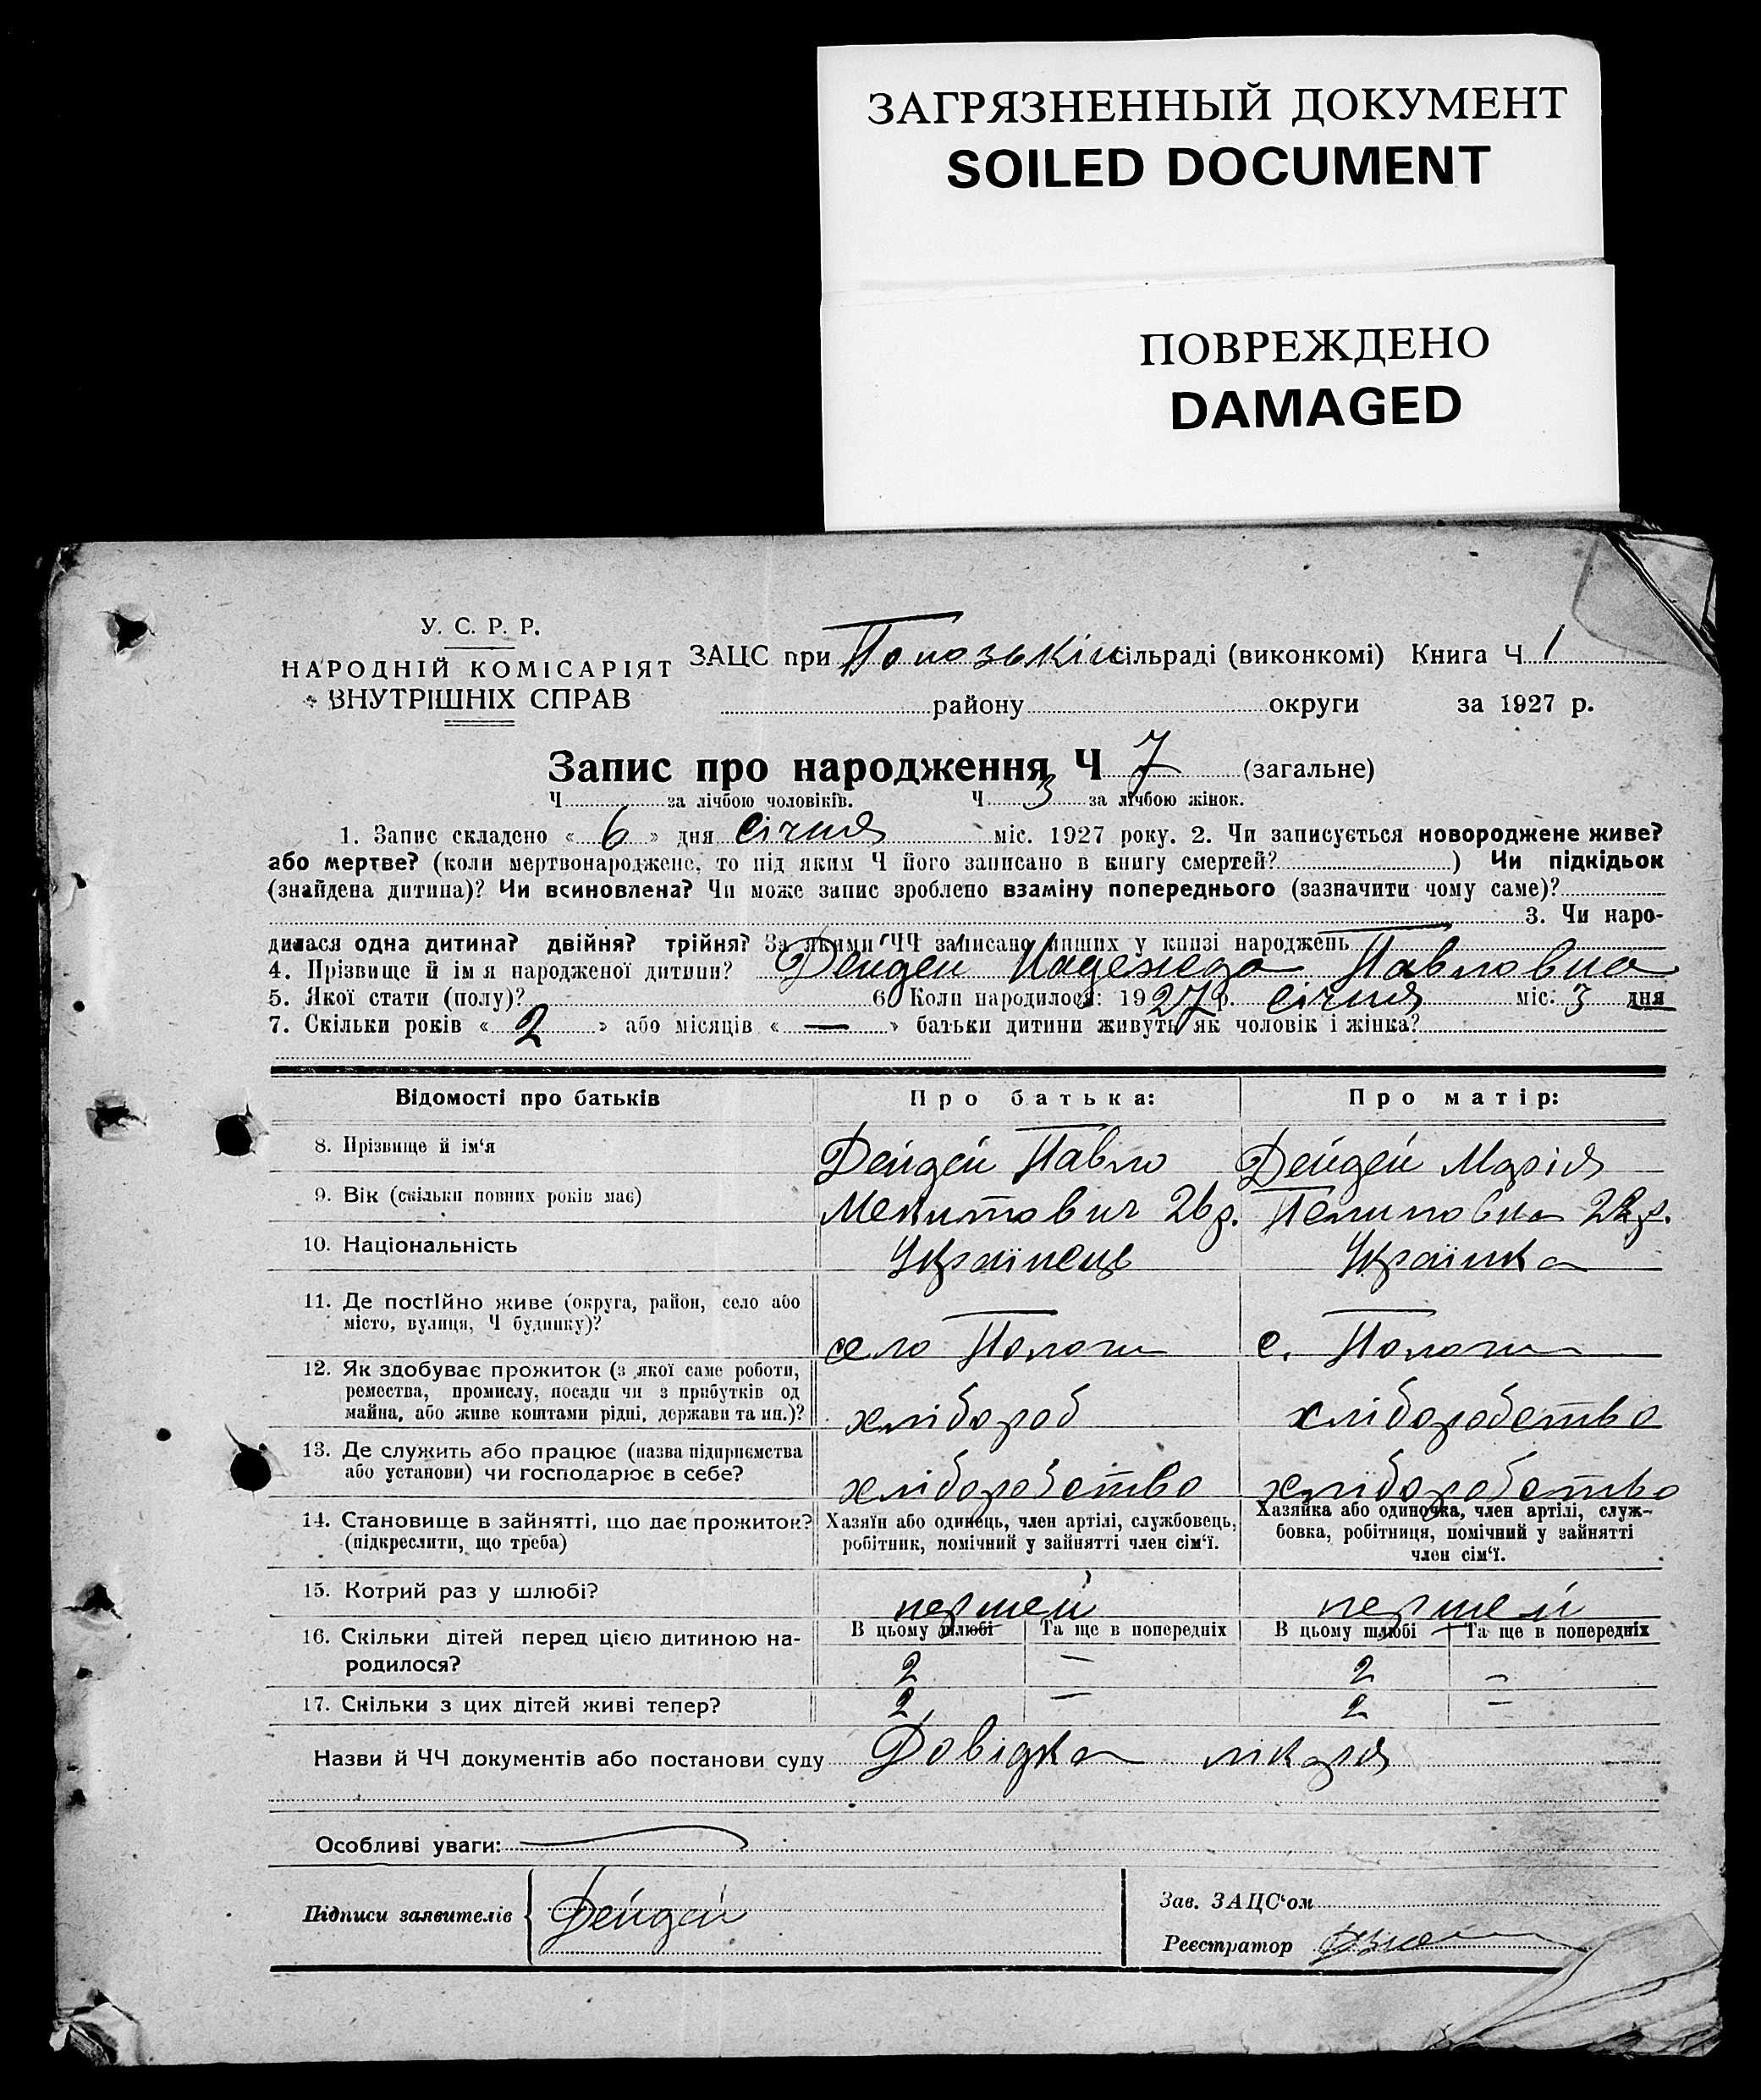 ЗАГРЯЗНЕННЫЙ ДОКУМЕНТ
SOILED DOCUMENT
ПОВРЕЖДЕНО
DAMAGED
У. С. Р. Р.
НАРОДНІЙ КОМІСАРІЯТ
ВНУТРІШНІХ СПРАВ
ЗАЦС при сільраді (виконкомі) Книга Ч 1
району округи за 1927 р.
Запис про народження Ч 7 (загальне)
Ч за лічбою чоловіків. Ч 3 за лічбою жінок.
1. Запис складено « 6 » дня січня міс. 1927 року. 2. Чи записується новороджене живе?
або мертве? (коли мертвонароджене, то під яким Ч його записано в книгу смертей? ) Чи підкідьок
(знайдена дитина)? Чи всиновлена? Чи може запис зроблено взаміну попереднього (зазначити чому саме)?
3. Чи наро-
дилася одна дитина? двійня? трійня? За якими ЧЧ записано инших у книзі народжень
4. Прізвище й ім я народженої дитини? Дейдей Надежда Павловна
5. Якої стати (полу)? 6. Коли народилося: 1927 р. січня міс. 3 дня
7. Скільки років « 2 » або місяців « — » батьки дитини живуть як чоловік і жінка?
Відомості про батьків Про батька: Про матір:
8. Прізвище й ім‘я Дейдей Павло Дейдей Марія
9. Вік (скільки повних років має) 26 р.
10. Національність Українець Українка
11. Де постійно живе (округа, район, село або
місто, вулиця, Ч будинку)? село Пологи с. Пологи
12. Як здобуває прожиток (з якої саме роботи,
ремества, промислу, посади чи з прибутків од
майна, або живе коштами рідні, держави та ин.)? хлібороб хліборобство
13. Де служить або працює (назва підприємства
або установи) чи господарює в себе? хліборобство хліборобство
14. Становище в зайнятті, що дає прожиток?
(підкреслити, що треба)
Хазяїн або одинець, член артілі, службовець,
робітник, помічний у зайнятті член сім‘ї.
Хазяйка або одиночка, член артілі, служ-
бовка, робітниця, помічний у зайнятті
член сім‘ї.
15. Котрий раз у шлюбі? першей першей
16. Скільки дітей перед цією дитиною на-
родилося?
В цьому шлюбі Та ще в попередніх В цьому шлюбі Та ще в попередніх
2 — 2 —
17. Скільки з цих дітей живі тепер? 2 — 2 —
Назви й ЧЧ документів або постанови суду Довідка лікаря
Особливі уваги:
Підписи заявителів Дейдей
Зав. ЗАЦС‘ом
Реєстратор